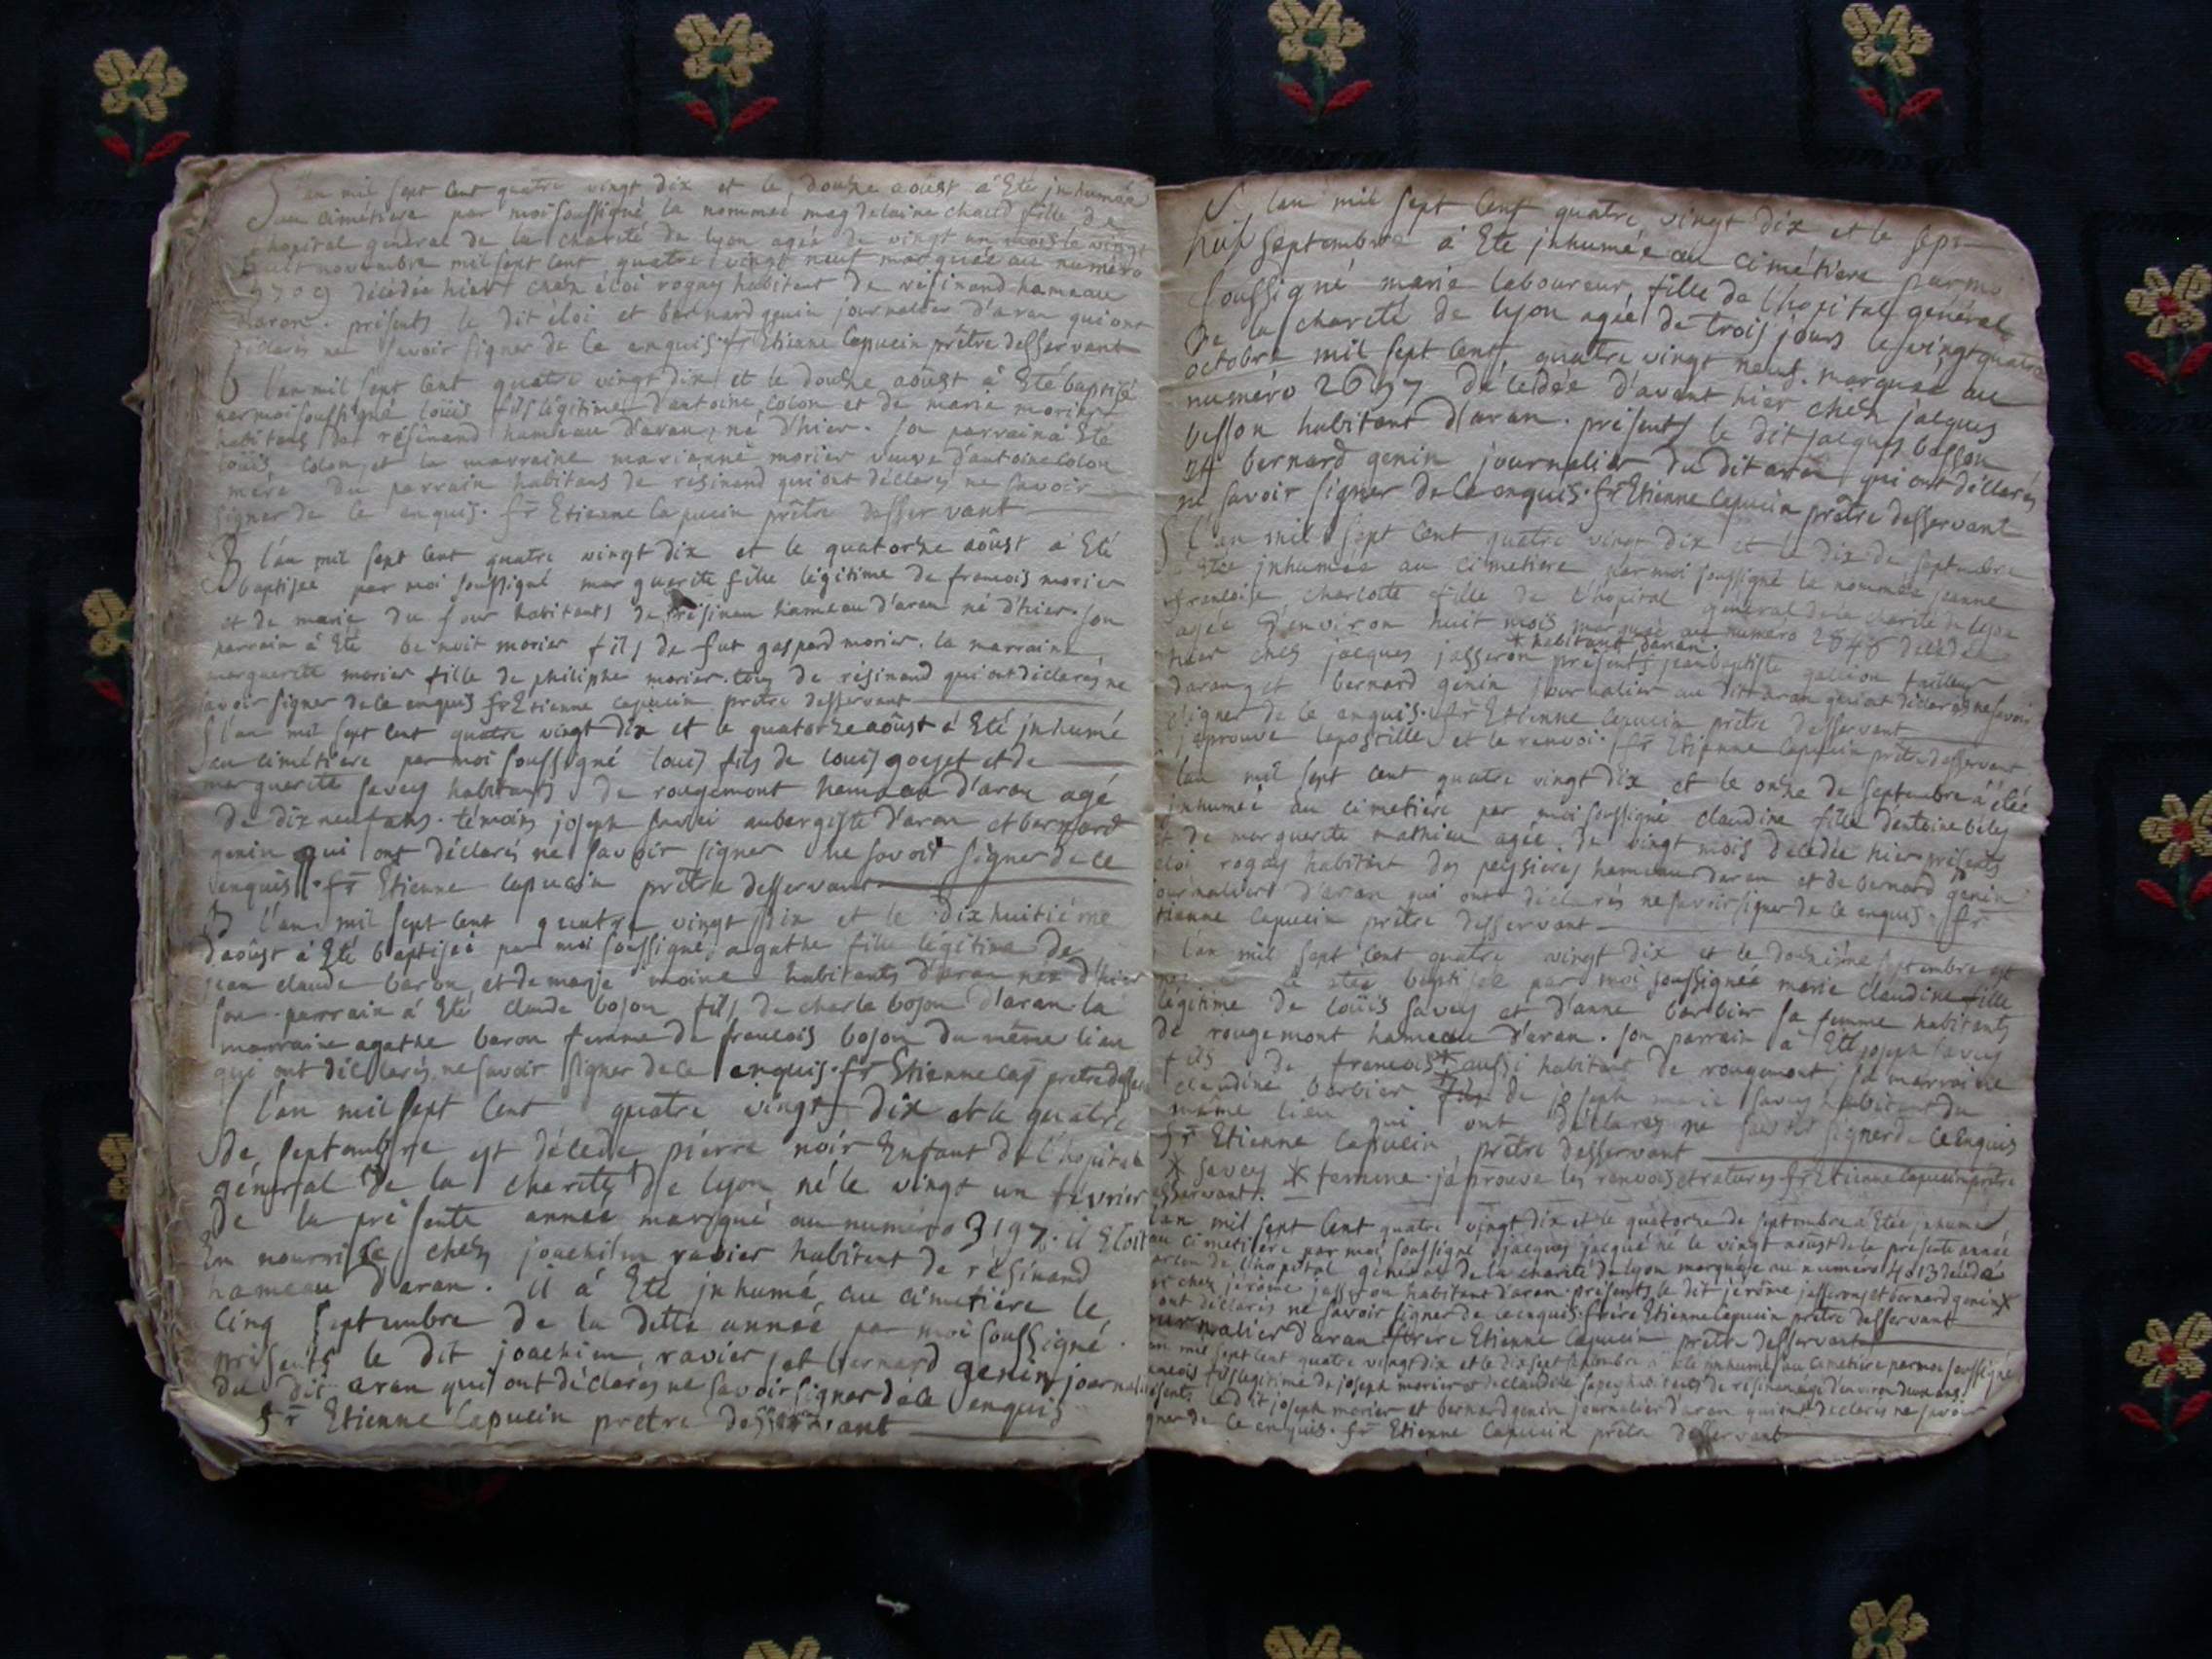 S l'an mil sept cent quatre vingt dix et le douze aoûst à Eté inhumée
au cimétiere par moi soussigné la nommeé magdelaine chaud fille de
l'hopital général de la charité de lyon ageé de vingt un mois le vingt
huit novembre mil sept cent quatre vingt neuf marqueé au numéro
décédée hier chéz éloi rogay habitant de résinand hameau
d'aran. présents le dit éloi et bernard genin journalier d'aran qui ont
déclarés ne savoir signer de ce enquis. fr Etienne Capucin prêtre desservant
B l'an mil sept cent quatre vingt dix et le douze aoûst à Eté baptisé
par moi soussigné loüis fils légitime d'antoine colon et de marie morier
habitans de résinand hameau d'aran, né d'hier. son parrain à Eté
loüis colon, et la marraine marianne morier veuve d'antoine colon
mére du parrain habitans de résinand qui ont déclarés ne savoir
signer de ce enquis. fr Etienne Capucin prêtre desservant
B l'an mil sept cent quatre vingt dix et le quatorze aoûst à Eté
baptiseé par moi soussigné marguerite fille légitime de francois morier
et de marie du four habitants de résinan hameau d'aran né d'hier. son
parrain à Eté benoit morier fils de fut gaspard morier. la marraine
marguerite morier fille de philiphe morier. tous de résinand qui ont déclarés ne
savoir signer de ce enquis fr Etienne capucin prêtre desservant
S l'an mil sept cent quatre vingt dix et le quatorze aoûst à Eté inhumé
au cimétiere par moi soussigné louis fils de louis goyet et de
marguerite savey habitants de rougemont hameau d'aran agé
de dix neuf ans. témoins joseph savei aubergiste d'aran et bernard
genin qui ont déclarés ne savoir signer ne savoir signer de ce
enquis. fr Etienne capucin prêtre desservant
B l'an mil sept cent quatre vingt dix et le dix huitiéme
d'aoûst à Eté baptiseé par moi soussigné agathe fille légitime de
jean claude baron et de marie moine habitants d'aran neé d'hier
son parrain à Eté claude bojon fils de charle bojon d'aran. la
marraine agathe baron femme de francois bojon du même lieu
qui ont déclarés ne savoir signer de ce enquis. fr Etienne cap prêtre
S l'an mil sept cent quatre vingt dix et le quatre
de septembre est décédé pierre noir Enfant de l'hopital
général de la charité de lyon, né le vingt un février
de la présente anneé marqué au numéro 3197. il Etoit
En nourrice chéz joachim ravier habitant de résinand
hameau d'aran. il à Eté inhumé au cimetiére le
cinq septembre de la ditte anneé par moi soussigné.
présents le dit joachim ravier, et bernard genin journalier
du dit aran qui ont déclarés ne savoir signer de ce enquis
fr Etienne Capucin prêtre desservant
S l'an mil sept cent quatre vingt dix et le sept
septembre à Eté inhumeé au cimétiere par moi
soussigné marie laboureur fille de l'hopital général
de la charité de lyon ageé de trois jours le vingt quatre
octobre mil sept cent quatre vingt neuf. marqueé au
numéro 2697 décédeé d'avant hier chéz jacques
besson habitant d'aran. présents le dit jacques besson
et bernard genin journalier du dit aran qui ont déclarés
ne savoir signer de ce enquis. fr Etienne Capucin prêtre desservant
S l'an mil sept cent quatre vingt dix et le dix de septembre
à Eté inhumeé au cimetiere par moi soussigné la nommeé jeanne
francoise charlotte fille de l'hopital général de la charité de lyon
agée d'environ huit mois marqueé au numéro 2848 décédée
* habitant d'aran.
hier chez jacques jasseron* présents jean baptiste gallion tailleur
d'aran, et bernard genin journalier du dit aran qui ont déclarés ne savoir
signer de ce enquis. fr Etienne Capucin prêtre desservant
j'aprouve l'apostille et le renvoi. fr Etienne Capucin prêtre desservant
l'an mil sept cent quatre vingt dix et le onze de septembre à été
inhumeé au cimetiére par moi soussigné claudine fille d'entoine
et de marguerite mathieu ageé de vingt mois décédée hier. présents
éloi rogay habitant des peyssieres hameau d'aran et de bernard genin
journaliers d'aran qui ont déclarés ne savoir signer de ce enquis. fr
Etienne Capucin prêtre desservant
l'an mil sept cent quatre vingt dix et le douziéme septembre est
neé et à été baptisée par moi soussigneé marie claudine fille
légitime de loüis savey et d'anne barbier sa femme habitants
de rougemont hameau d'aran. son parrain à Eté joseph savey
fils de francois* aussi habitant de rougemont, sa marraine
claudine barbier * de joseph marie savey habitant du
même lieu qui ont déclarés ne savoir signer de ce Enquis
fr Etienne Capucin prêtre desservant
* savey * femme. j'aprouve les renvois et ratures fr Etienne capucin prêtre
desservant.
l'an mil sept cent quatre vingt dix et le quatorze de septembre à Eté inhumé
au cimetiére par moi soussigné jacques jacqué né le vingt aoûst de la présente année
de l'hopital général de la charité de lyon marqueé au numéro 4013 décédé
chez jérôme jasseron habitant d'aran. présents le dit jérôme jasseron, et bernard genin*
ont déclarés ne savoir signer de ce enquis. frere Etienne Capucin prêtre desservant
journalier d'aran. frere Etienne Capucin prêtre desservant
l'an mil sept cent quatre vingt dix et le dix sept septembre à été inhumé au cimetiére par moi soussigné
francois fils légitime de joseph morier et de claudine savey habitants de résinan agé d'environ deux ans.
présents le dit joseph morier et bernard genin journalier d'aran qui ont déclarés ne savoir
signer de ce enquis. fr Etienne Capucin prêtre desservant